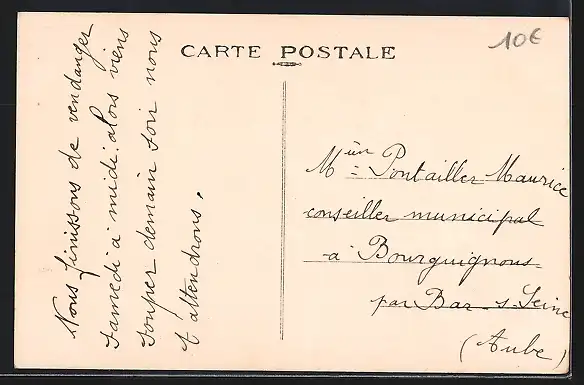 CARTE POSTALE
10€
Nous finissons de vendanger
samedi à midi. alors viens
souper demain soir nous
t'attendrons.
Mⁱᵉⁿ Pontailler Maurice
conseiller municipal
à Bourguignons
par Bar-s-Seine
(Aube)